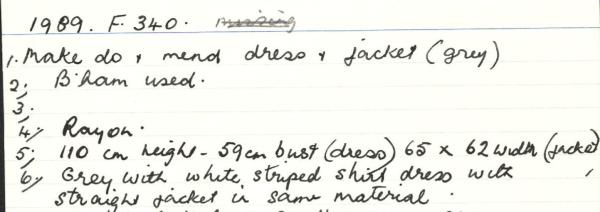 1989. F. 340. missing
1. Make do & mend dress & jacket (grey)
2; B'ham used.
3;
4; Rayon.
5; 110 cm height - 59cm bust (dress) 65 x 62 width (jacket)
6; Grey with white striped shirt dress with
straight jacket in same material.